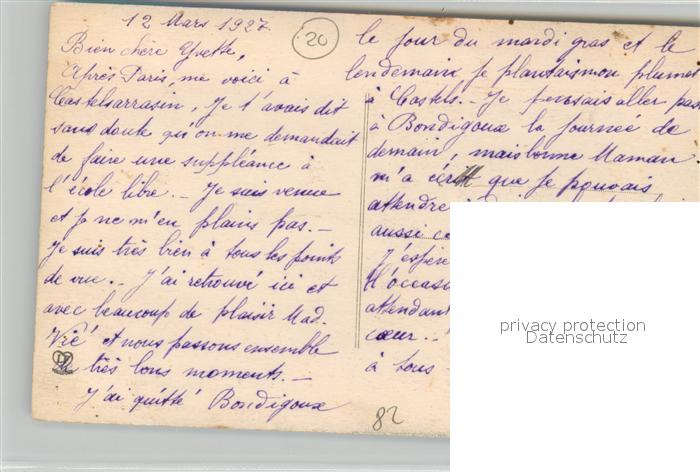 12 Mars 1927
20
Bien chère Yvette,
Après Paris, me voici à
Castelsarrasin, Je t'avais dit
sans doute qu'on me demandait
de faire une suppléance à
l'école libre. — Je suis venue
et je ne m'en plains pas. —
Je suis très bien à tous les points
de vue. — J'ai retrouvé ici et
avec beaucoup de plaisir Mad.
Vié et nous passons ensemble
de très bons moments. —
J'ai quitté Bondigoux
le jour du mardi gras et le
lendemain je plantais mon plumeau
à Castels. — Je pensais aller pas
à Bondigoux la journée de
demain, mais bonne Maman
m'a écrit que je pouvais
attendre
aussi
J'espère
l'occasi
attendant
cœur. —
à tous —
82
privacy protection
Datenschutz